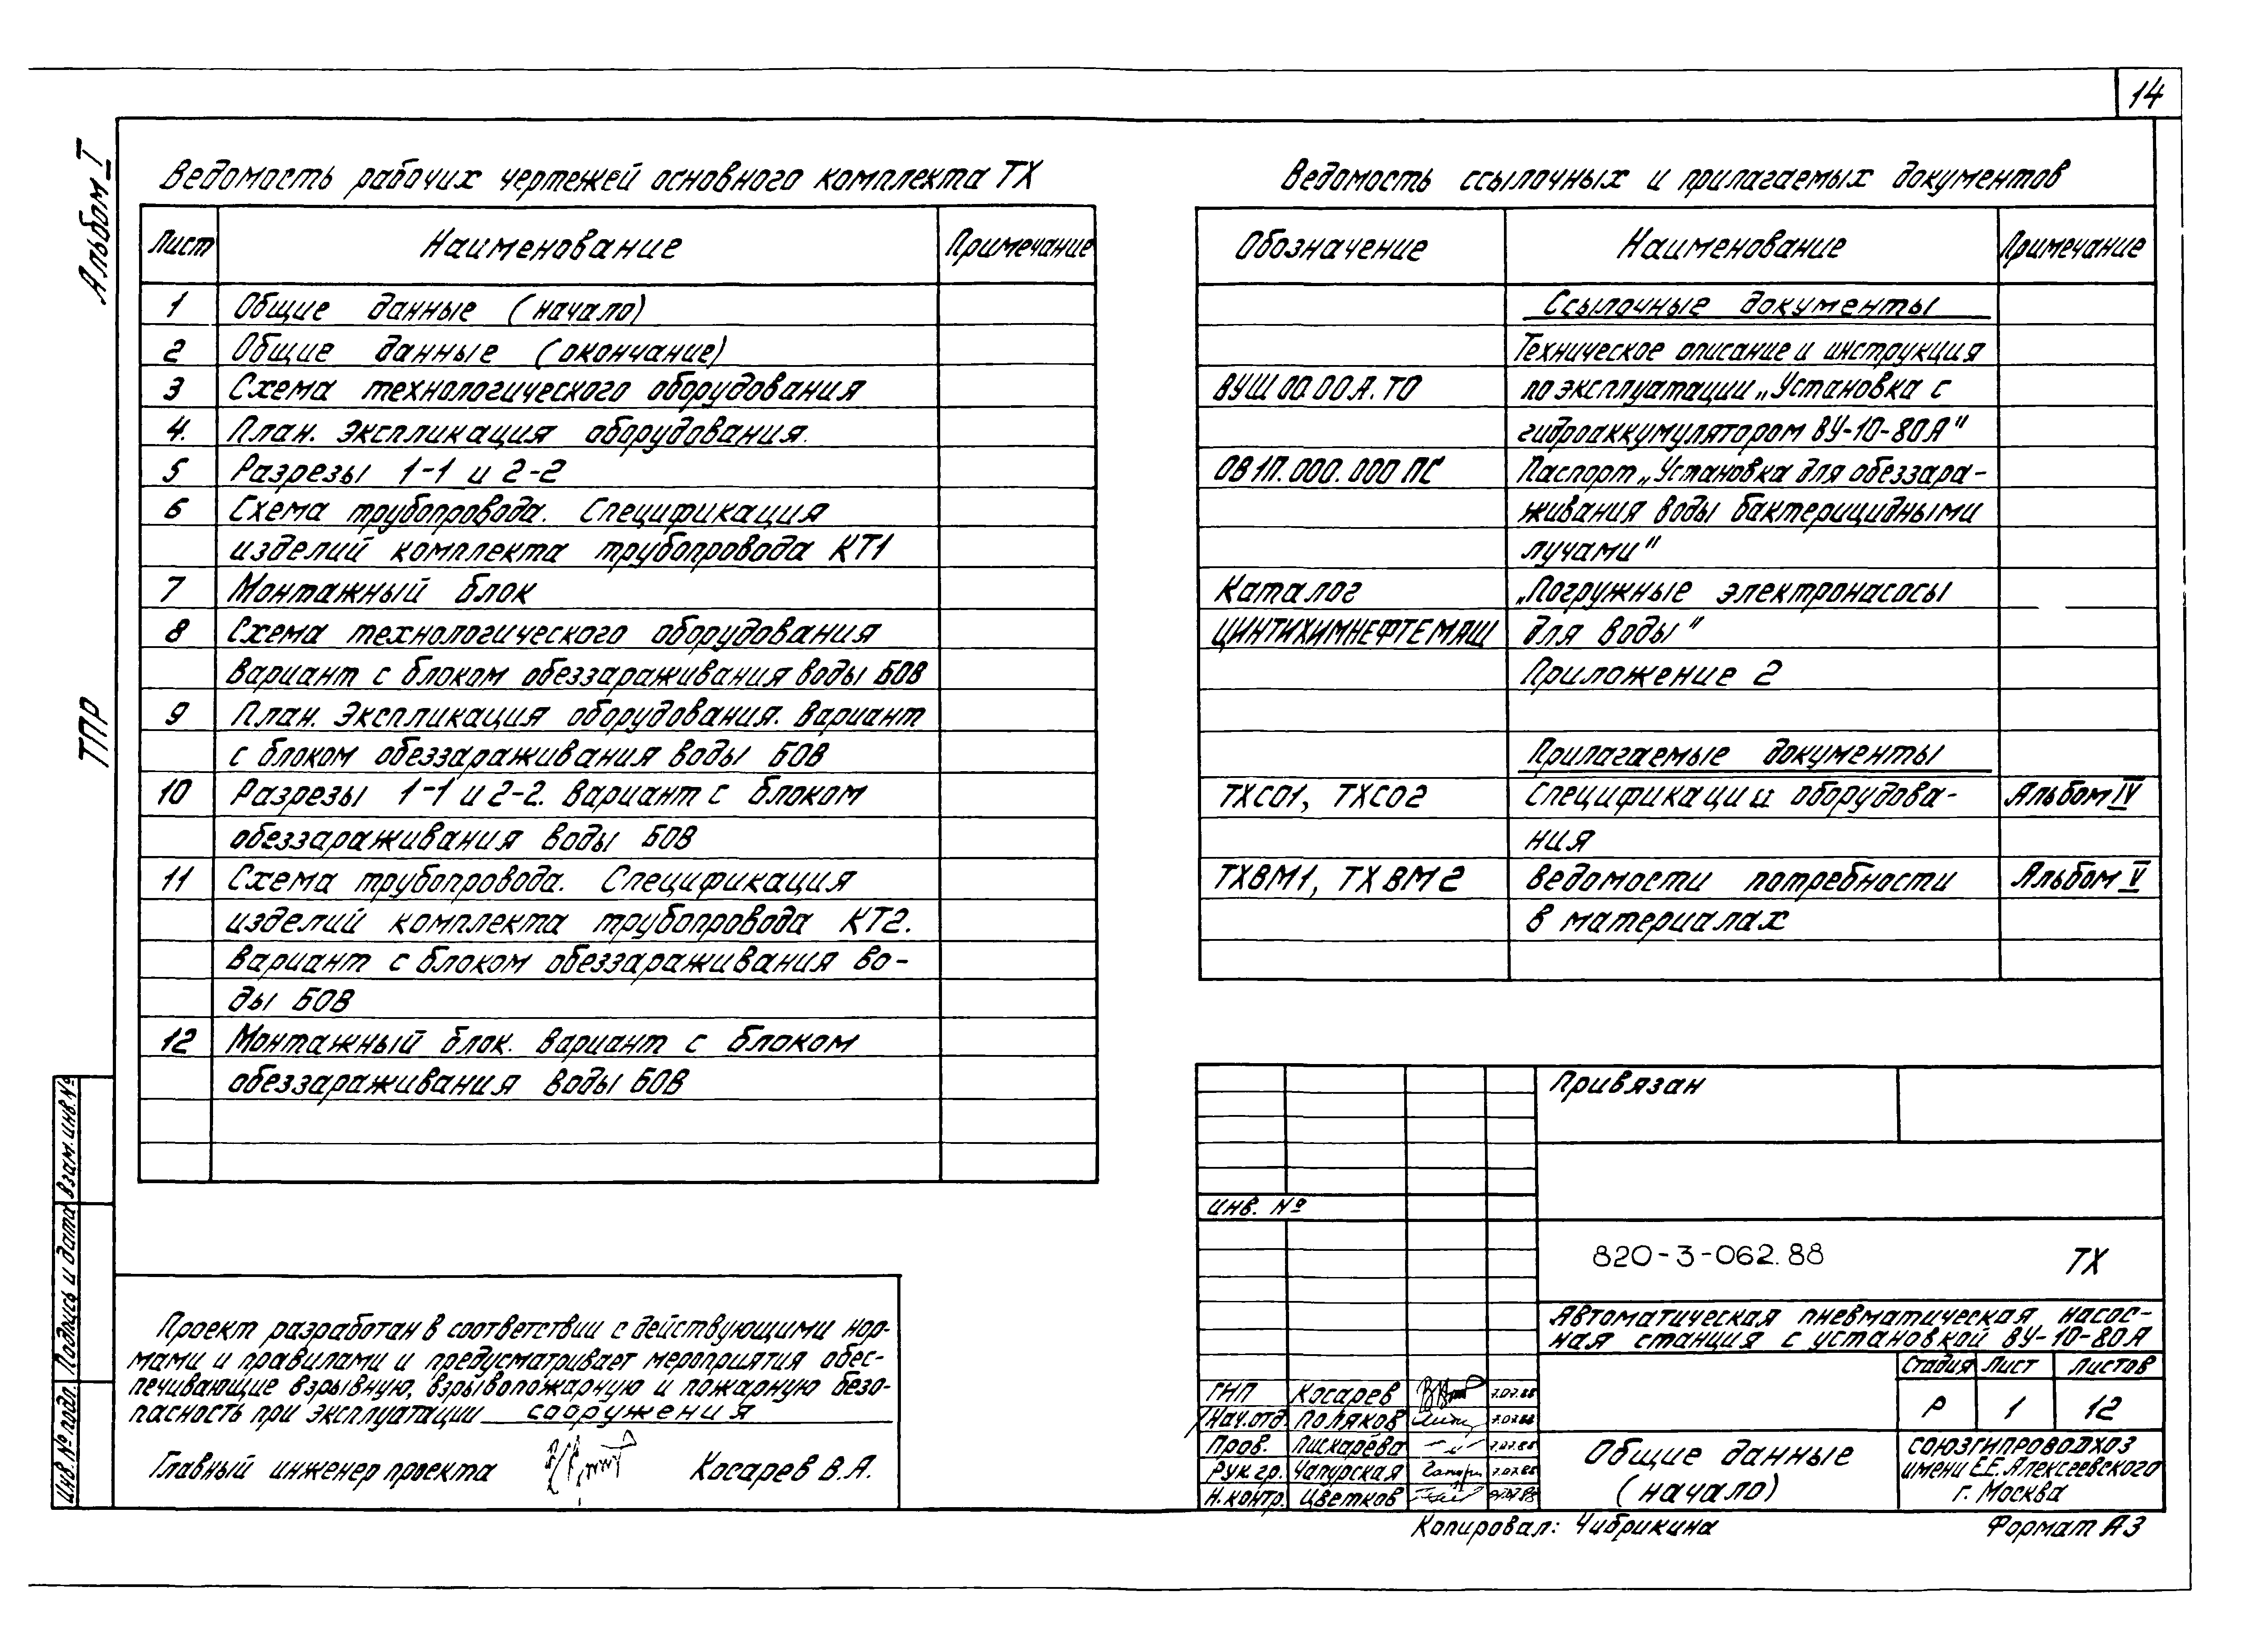 14
Альбом I
ТПР
Ведомость рабочих чертежей основного комплекта ТХ
Лист Наименование Примечание
1 Общие данные (начало)
2 Общие данные (окончание)
3 Схема технологического оборудования
4. План. Экспликация оборудования.
5 Разрезы 1-1 и 2-2
6 Схема трубопровода. Спецификация
изделий комплекта трубопровода КТ1
7 Монтажный блок
8 Схема технологического оборудования
Вариант с блоком обеззараживания воды БОВ
9 План. Экспликация оборудования. Вариант
с блоком обеззараживания воды БОВ
10 Разрезы 1-1 и 2-2. Вариант с блоком
обеззараживания воды БОВ
11 Схема трубопровода. Спецификация
изделий комплекта трубопровода КТ2.
Вариант с блоком обеззараживания во-
ды БОВ
12 Монтажный блок. Вариант с блоком
обеззараживания воды БОВ
Ведомость ссылочных и прилагаемых документов
Обозначение Наименование Примечание
Ссылочные документы
Техническое описание и инструкция
ВУШ 00.00А.ТО по эксплуатации „Установка с
гидроаккумулятором ВУ-10-80А"
ОВ1П.000.000 ПС Паспорт „Установка для обеззара-
живания воды бактерицидными
лучами"
Каталог „Погружные электронасосы
ЦИНТИХИМНЕФТЕМАШ для воды"
Приложение 2
Прилагаемые документы
ТХСО1, ТХСО2 Спецификации оборудова- Альбом IV
ния
ТХВМ1, ТХВМ2 Ведомости потребности Альбом V
в материалах
Взам. инв. №
Подпись и дата
Инв. № подл.
Проект разработан в соответствии с действующими нор-
мами и правилами и предусматривает мероприятия обес-
печивающие взрывную, взрывопожарную и пожарную безо-
пасность при эксплуатации сооружения
Главный инженер проекта Косарев В.А.
Привязан
Инв. №
820-3-062.88 ТХ
Автоматическая пневматическая насос-
ная станция с установкой ВУ-10-80А
Стадия Лист Листов
Р 1 12
ГИП Косарев 7.07.88
Нач.отд. Поляков 7.07.88
Пров. Пискарёва 7.07.88
Рук.гр. Чапурская 7.07.88
Н.контр. Цветков
Общие данные
(начало)
СОЮЗГИПРОВОДХОЗ
имени Е.Е.Алексеевского
г. Москва
Копировал: Чибрикина Формат А3